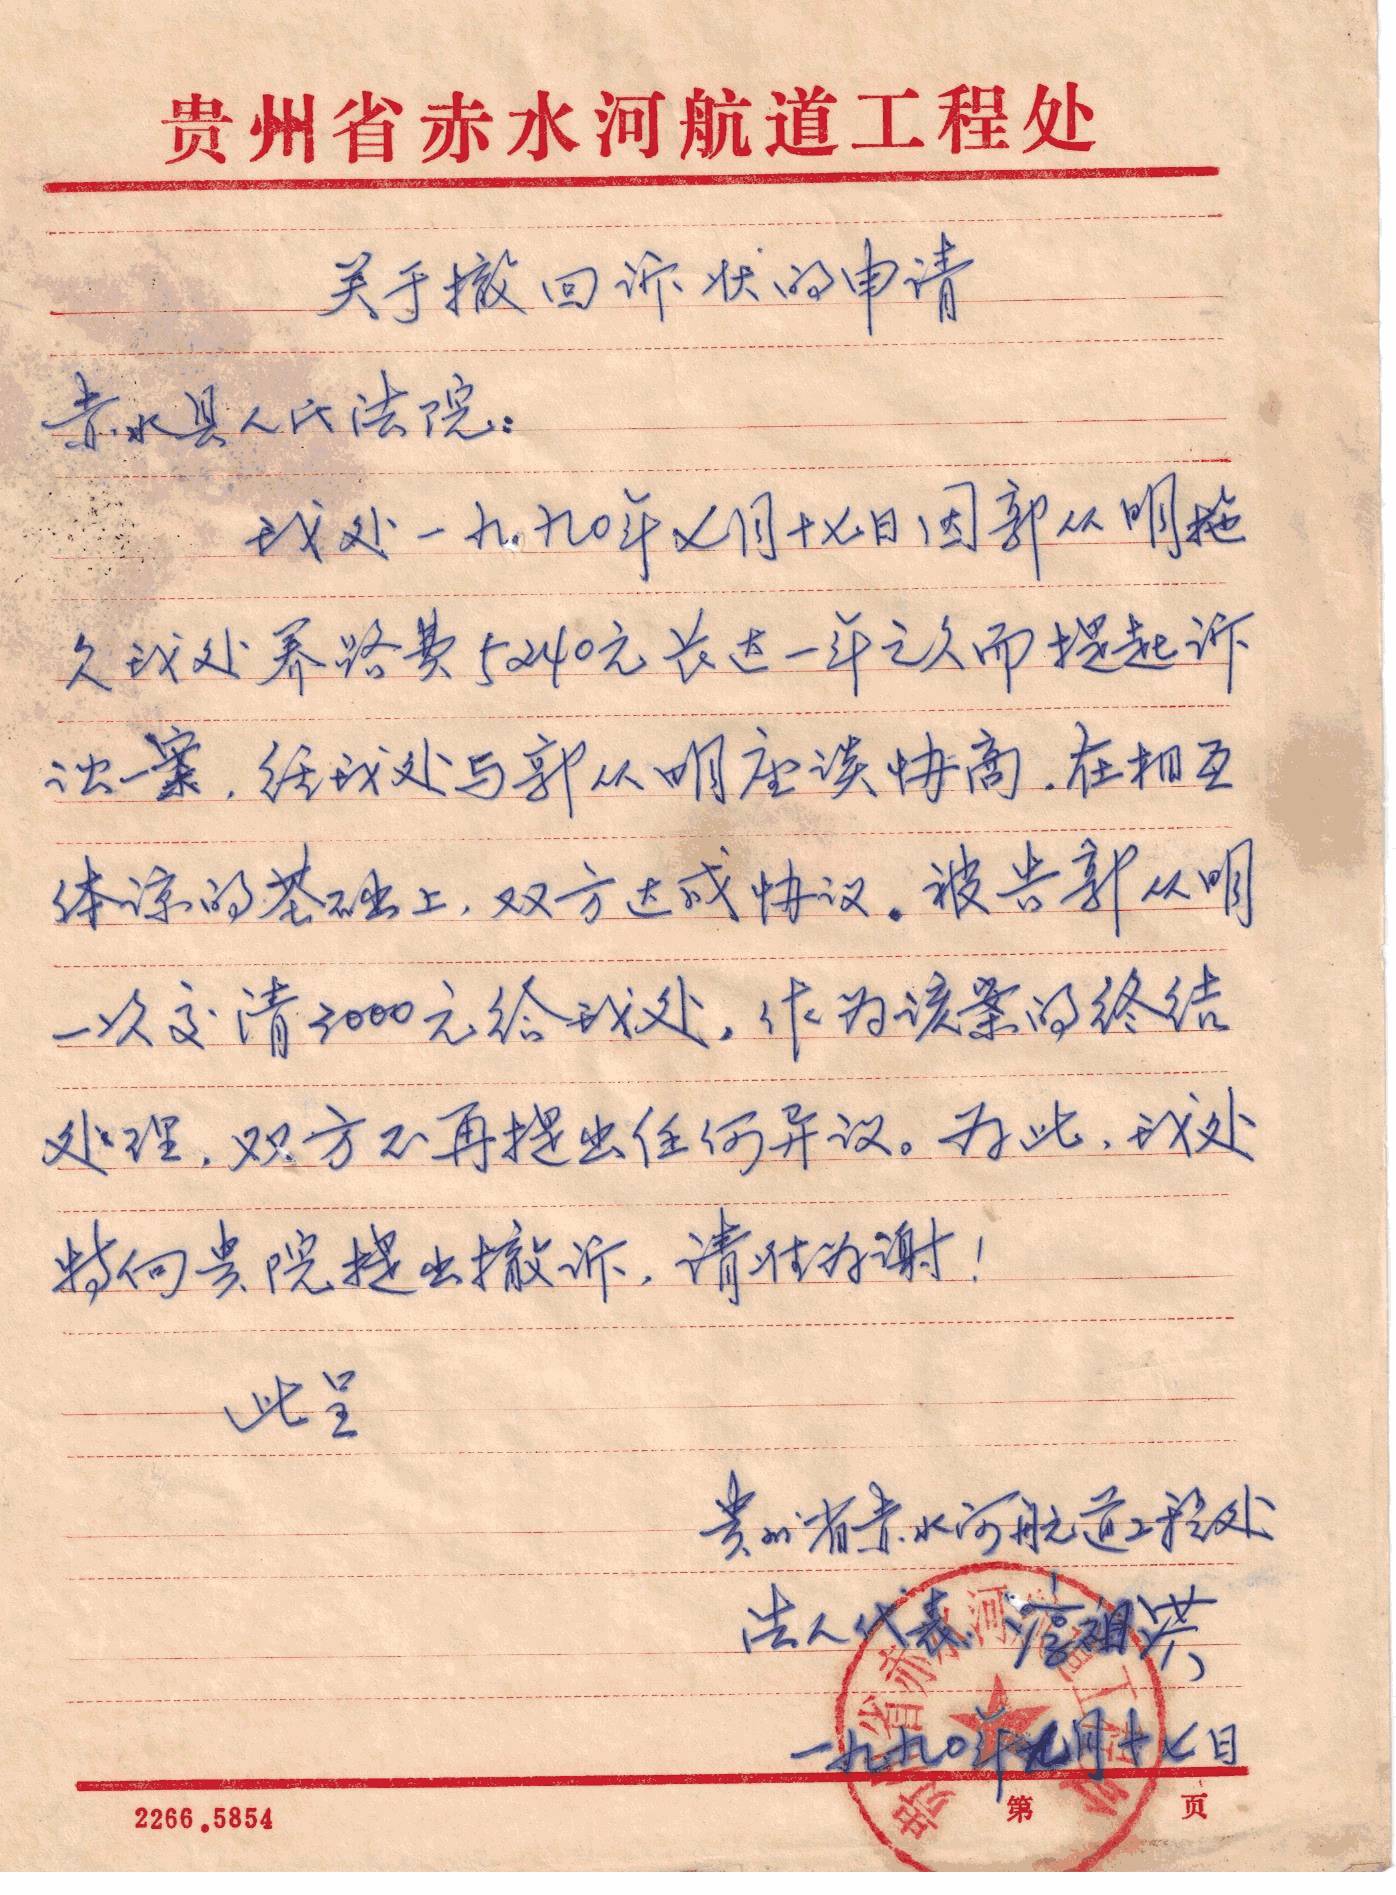 贵州省赤水河航道工程处
关于撤回诉状的申请
赤水县人民法院:
我处一九九〇年七月十七日因郭从明拖
欠我处养路费5240元长达一年之久而提起诉
讼一案,经我处与郭从明座谈协商.在相互
体谅的基础上,双方达成协议。被告郭从明
一次交清3000元给我处,作为该案的终结
处理,双方不再提出任何异议。为此,我处
特向贵院提出撤诉,请准为谢!
此呈
贵州省赤水河航道工程处
法人代表 淳祖洪
一九九〇年九月十七日
2266.5854 第 页